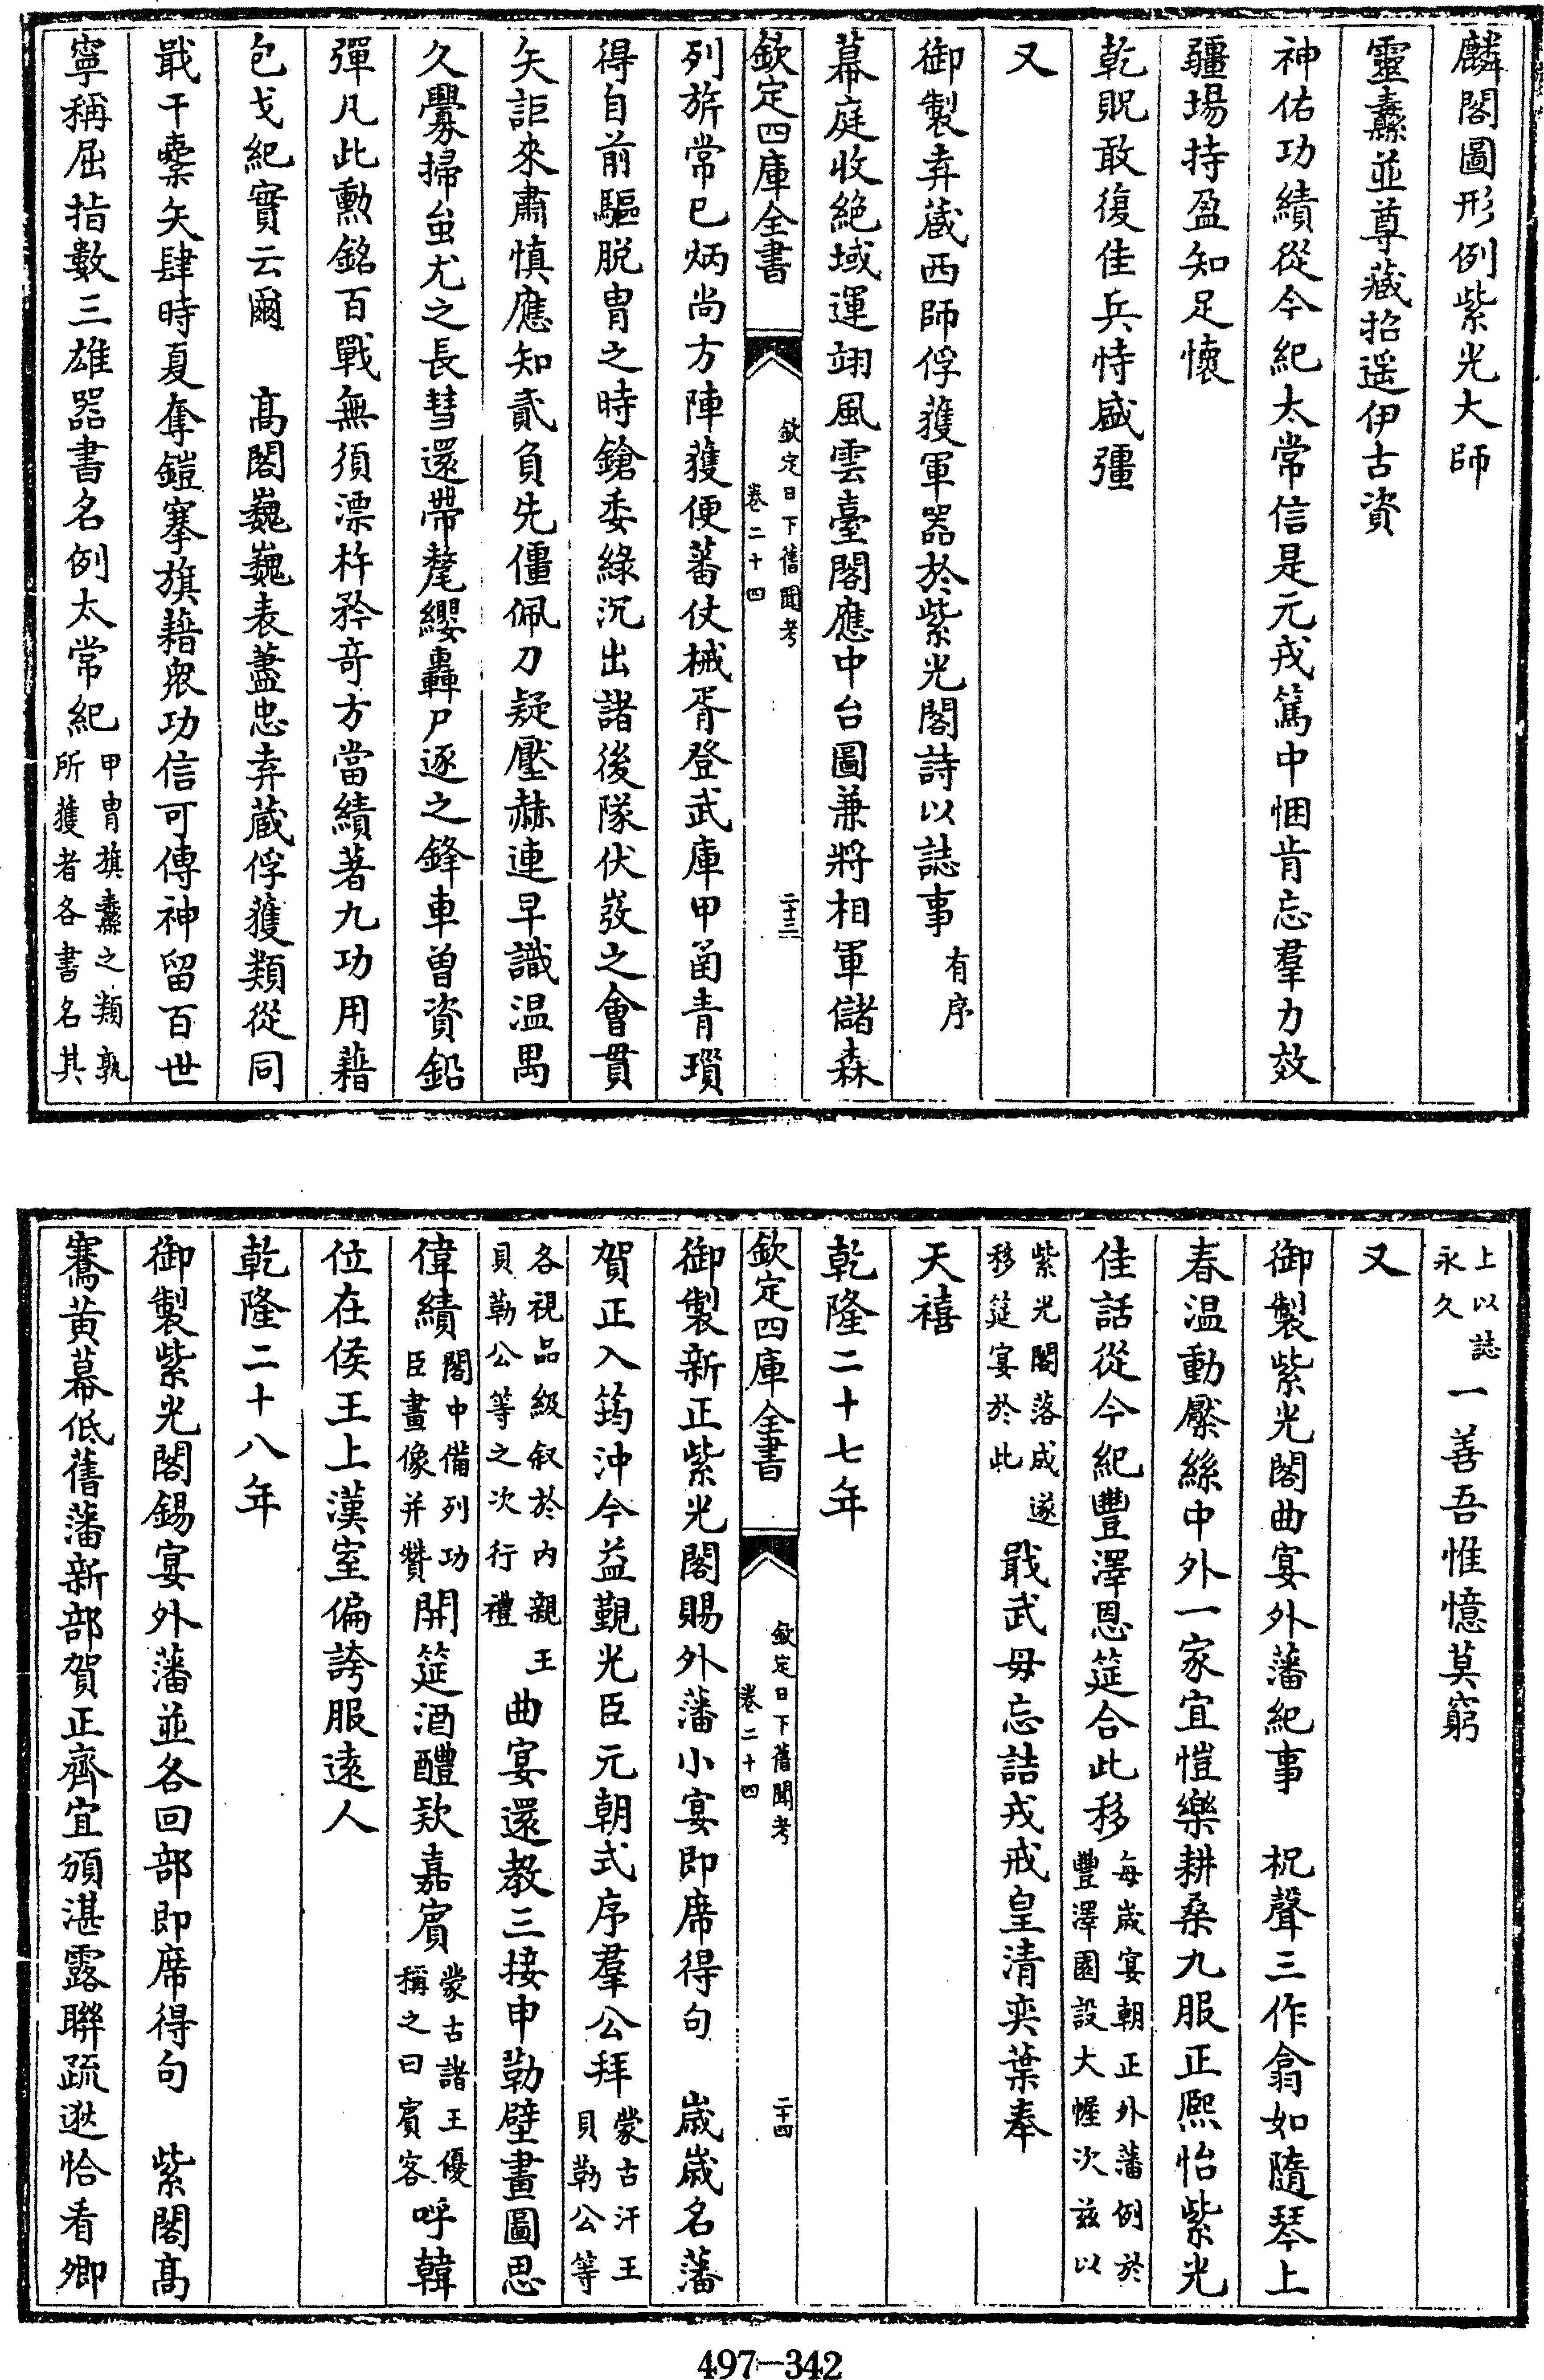 麟閣圖形例紫光大師
靈纛並尊藏招遥伊古資
神佑功績從今紀太常信是元戎篤中悃肯忘羣力效
疆場持盈知足懷
乾貺敢復佳兵恃盛彊
又
御製弆藏西師俘獲軍器於紫光閣詩以誌事有序
幕庭收絶域運翊風雲臺閣應中台圖兼將相軍儲森
欽定四庫全書
欽定日下舊聞考
卷二十四
二十三
列旂常已炳尚方陣獲便蕃仗械胥登武庫甲函青瑣
得自前驅脱冑之時鎗委綠沉出諸後隊伏弢之會貫
矢詎來肅慎應知貳負先僵佩刀疑壓赫連早識温禺
久釁掃蚩尤之長彗還帶氂纓轟尸逐之鋒車曾資鉛
彈凡此勲銘百戰無須漂杵矜奇方當績著九功用藉
包戈紀實云爾　高閣巍巍表藎忠弆藏俘獲類從同
戢干櫜矢肆時夏奪鎧搴旗藉衆功信可傳神留百世
寧稱屈指數三雄器書名例太常紀甲冑旗纛之類孰
所獲者各書名其
上以誌
永久一善吾惟憶莫窮
又
御製紫光閣曲宴外藩紀事　柷聲三作翕如隨琴上
春温動檿絲中外一家宜愷樂耕桑九服正熙怡紫光
佳話從今紀豐澤恩筵合此移每歲宴朝正外藩例於
豐澤園設大幄次兹以
紫光閣落成遂
移筵宴於此戢武毋忘詰戎戒皇清奕葉奉
天禧
乾隆二十七年
欽定四庫全書
欽定日下舊聞考
卷二十四
二十四
御製新正紫光閣賜外藩小宴即席得句　歲歲名藩
賀正入筠沖今益覲光臣元朝式序羣公拜蒙古汗王
貝勒公等
各視品級叙於内親王
貝勒公等之次行禮曲宴還教三接申勒壁畫圖思
偉績閣中備列功
臣畫像并贊開筵酒醴欵嘉賓蒙古諸王優
稱之曰賓客呼韓
位在侯王上漢室偏誇服遠人
乾隆二十八年
御製紫光閣錫宴外藩並各回部即席得句　紫閣高
騫黄幕低舊藩新部賀正齊宜頒湛露聯疏逖恰看卿
497-342